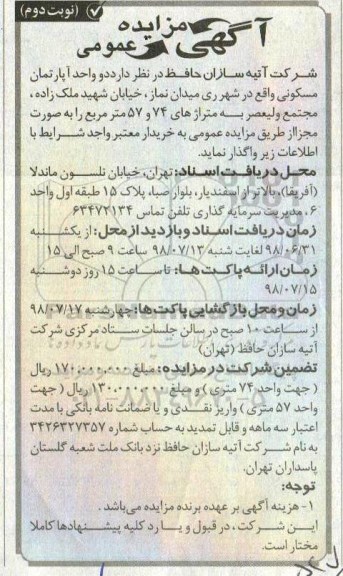 (نوبت دوم)
آگهی مزایده عمومی
شرکت آتیه سازان حافظ در نظر دارد دو واحد آپارتمان
مسکونی واقع در شهر ری میدان نماز ، خیابان شهید ملک زاده ،
مجتمع ولیعصر به متراژ های ۷۴ و ۵۷ متر مربع را به صورت
مجزا از طریق مزایده عمومی به خریدار معتبر واجد شرایط با
اطلاعات زیر واگذار نماید.
محل دریافت اسناد: تهران، خیابان نلسون ماندلا
(آفریقا)، بالاتر از اسفندیار، بلوار صبا، پلاک ۱۵ طبقه اول واحد
۶ ، مدیریت سرمایه گذاری تلفن تماس ۶۳۴۷۲۱۳۴
زمان دریافت اسناد و بازدید از محل: از یکشنبه
۹۸/۰۶/۳۱ لغایت شنبه ۹۸/۰۷/۱۳ ساعت ۹ صبح الی ۱۵
زمان ارائه پاکت ها: تا ساعت ۱۵ روز دوشنبه
۹۸/۰۷/۱۵
زمان و محل بازگشایی پاکت ها: چهارشنبه ۹۸/۰۷/۱۷
از ساعت ۱۰ صبح در سالن جلسات ستاد مرکزی شرکت
آتیه سازان حافظ (تهران)
تضمین شرکت در مزایده: مبلغ ۱۷۰،۰۰۰،۰۰۰ ریال
( جهت واحد ۷۴ متری ) و مبلغ ۱۳۰،۰۰۰،۰۰۰ ریال ( جهت
واحد ۵۷ متری ) واریز نقدی و یا ضمانت نامه بانکی با مدت
اعتبار سه ماهه و قابل تمدید به حساب شماره ۳۴۲۶۳۲۷۳۵۷
به نام شرکت آتیه سازان حافظ نزد بانک ملت شعبه گلستان
پاسداران تهران.
توجه:
۱- هزینه آگهی بر عهده برنده مزایده می‌باشد .
این شرکت ، در قبول و یا رد کلیه پیشنهادها کاملا
مختار است.